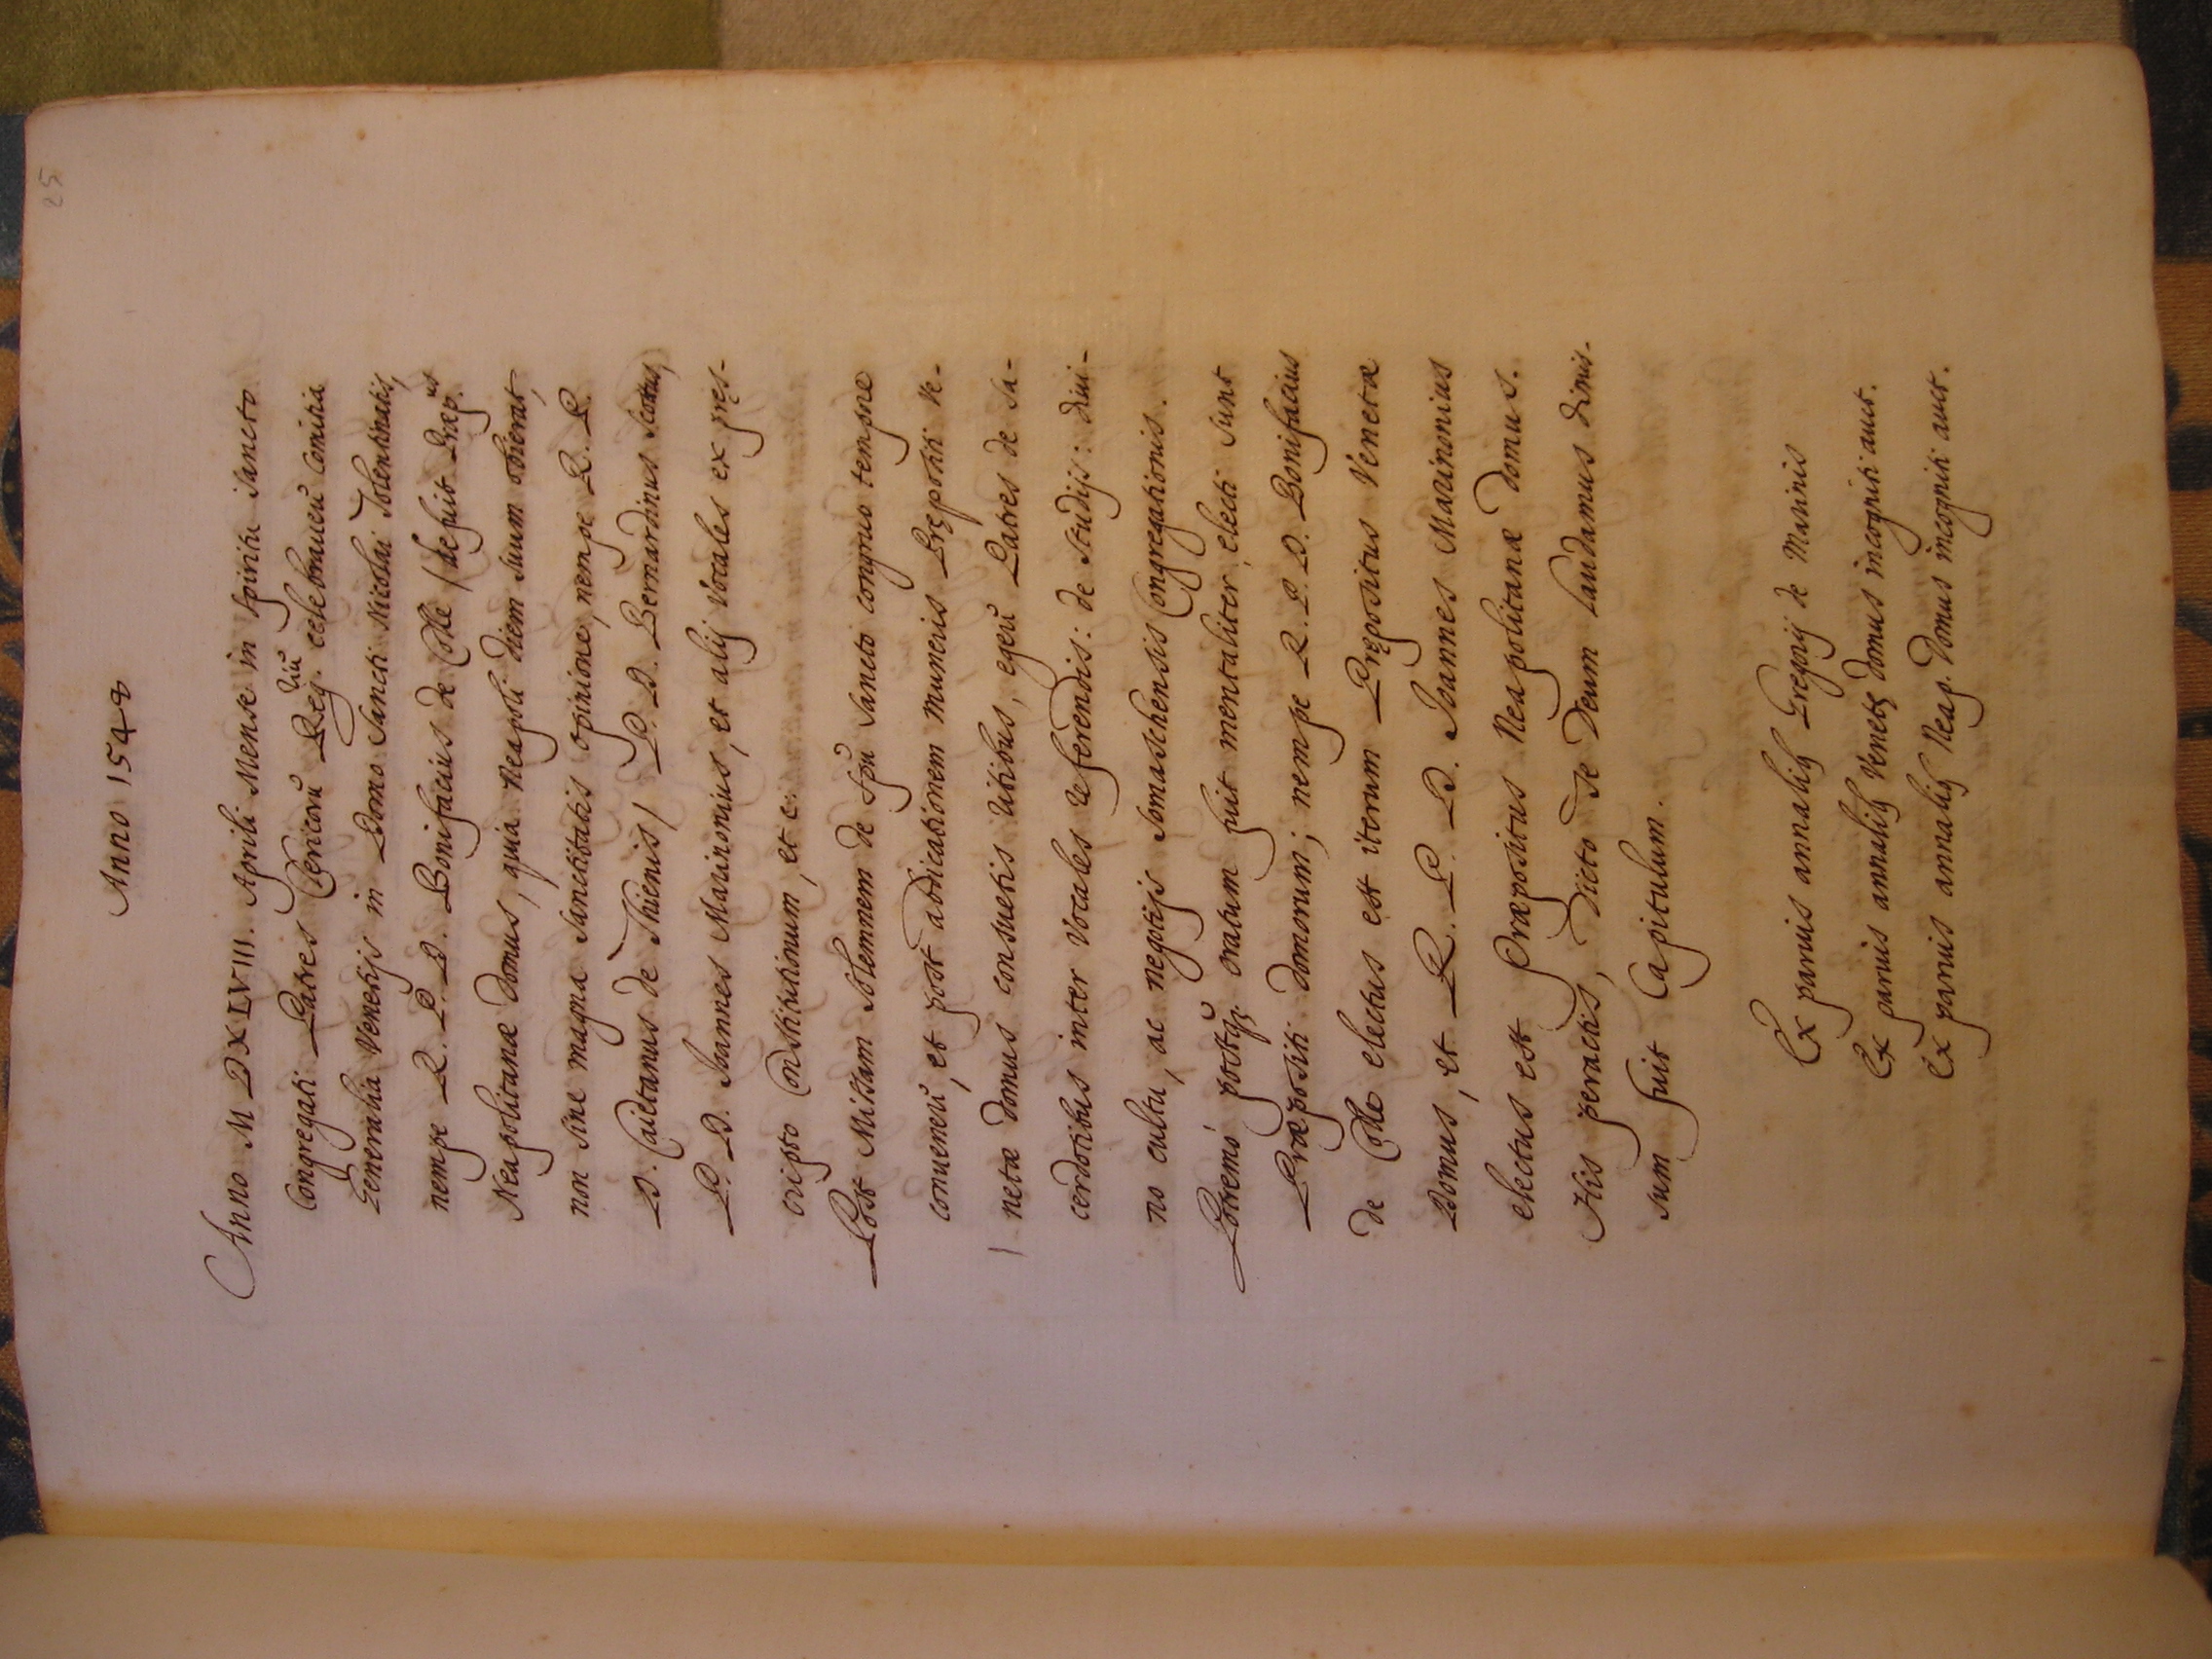 25
Anno 1548
Anno MDXLVIII. Aprili Mense in Spiritu Sancto
Congregati Patres Clericorũ Reg.riũ celebraueũ Comitia
Generalia Venetijs in Domo Sancti Nicolai Tolentinatis,
nempe R. P. D. Bonifacius de Colle (defuit Præp.us
Neapolitanæ domus, quia Neapoli diem suum obierat,
non sine magna sanctitatis opinione, nempe R. P.
D. Caietanus de Thienis) P. D. Bernardinus Scottus,
P. D. Joannes Marinonius, et alij Vocales ex pręs-
cripto Constitutionum, et c.
Post Missam solemnem de Spũ Sancto congruo tempore
conueneũ, et post abdicationem muneris Prępositi Ve-
netæ domus consuetis ritibus, egeũ Patres de Sa-
cerdotibus inter Vocales referendis: de studijs: diui-
no cultu, ac negotijs Somaschensis Congregationis.
Potremò postq̃ oratum fuit mentaliter, electi sunt
Præpositi domorum; nempe R. P. D. Bonifacius
de Colle electus est iterum Prępositus Venetæ
Domus, et R. P. D. Joannes Marinonius
electus est Præpositus Neapolitanæ domus.
His peractis, dicto Te Deum laudamus dimis-
sum fuit Capitulum.
Ex paruis annalib9 Gregorij de Marinis
Ex paruis annalib9 Venetę domus incogniti auct.
Ex paruis annalib9 Neap. domus incogniti auct.